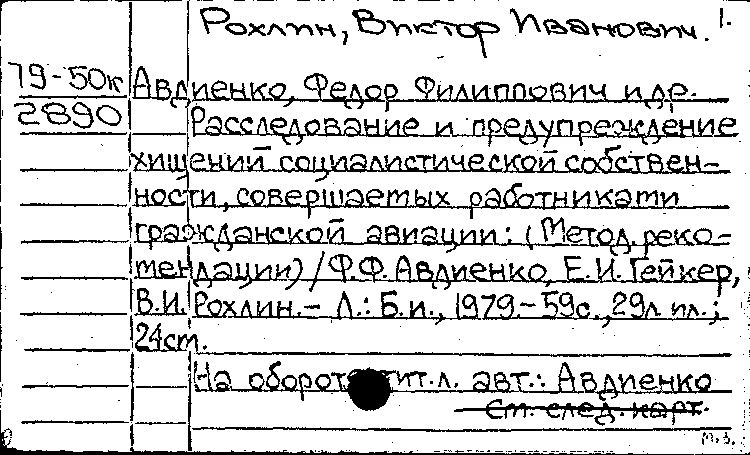 Рохлин, Виктор Иванович. 1.
79-50к Авдиенко, Федор Филиппович и др.
2890 Расследование и предупреждение
хищений социалистической собствен-
ности, совершаемых работниками
гражданской авиации: (Метод. реко-
мендации) / Ф.Ф. Авдиенко, Е.И. Гейкер,
В.И. Рохлин. – Л.: Б.и., 1979 – 59с., 29л ил.;
24см.
На обороте тит. л. авт.: Авдиенко
См. след. карт.
м.з.